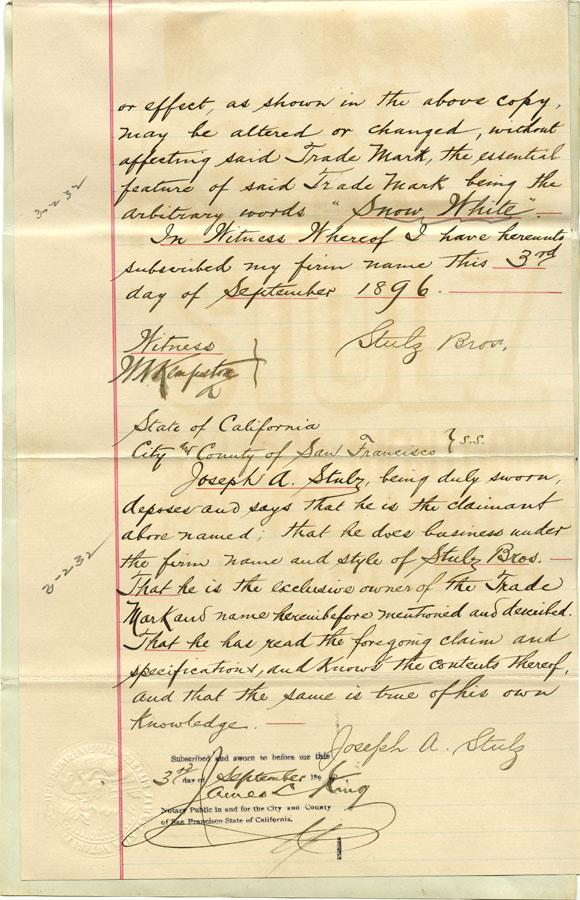 or effect, as shown in the above copy,
may be altered or changed, without
affecting said Trade Mark, the essential
feature of said Trade Mark being the
arbitrary words "Snow White".
In Witness Whereof I have hereunto
subscribed my firm name this 3rd
day of September 1896.
Witness
Stulz Bros.
State of California
City and County of San Francisco } s.s.
Joseph A. Stulz, being duly sworn,
deposes and says that he is the claimant
above named; that he does business under
the firm name and style of Stulz Bros.
That he is the exclusive owner of the Trade
Mark and name hereinbefore mentioned and described.
That he has read the foregoing claim and
specifications, and knows the contents thereof,
and that the same is true of his own
knowledge.
Joseph A. Stulz
Subscribed and sworn to before me this
3rd day of September 1896
James L. King
Notary Public in and for the City and County
of San Francisco State of California.
3-232
3-232